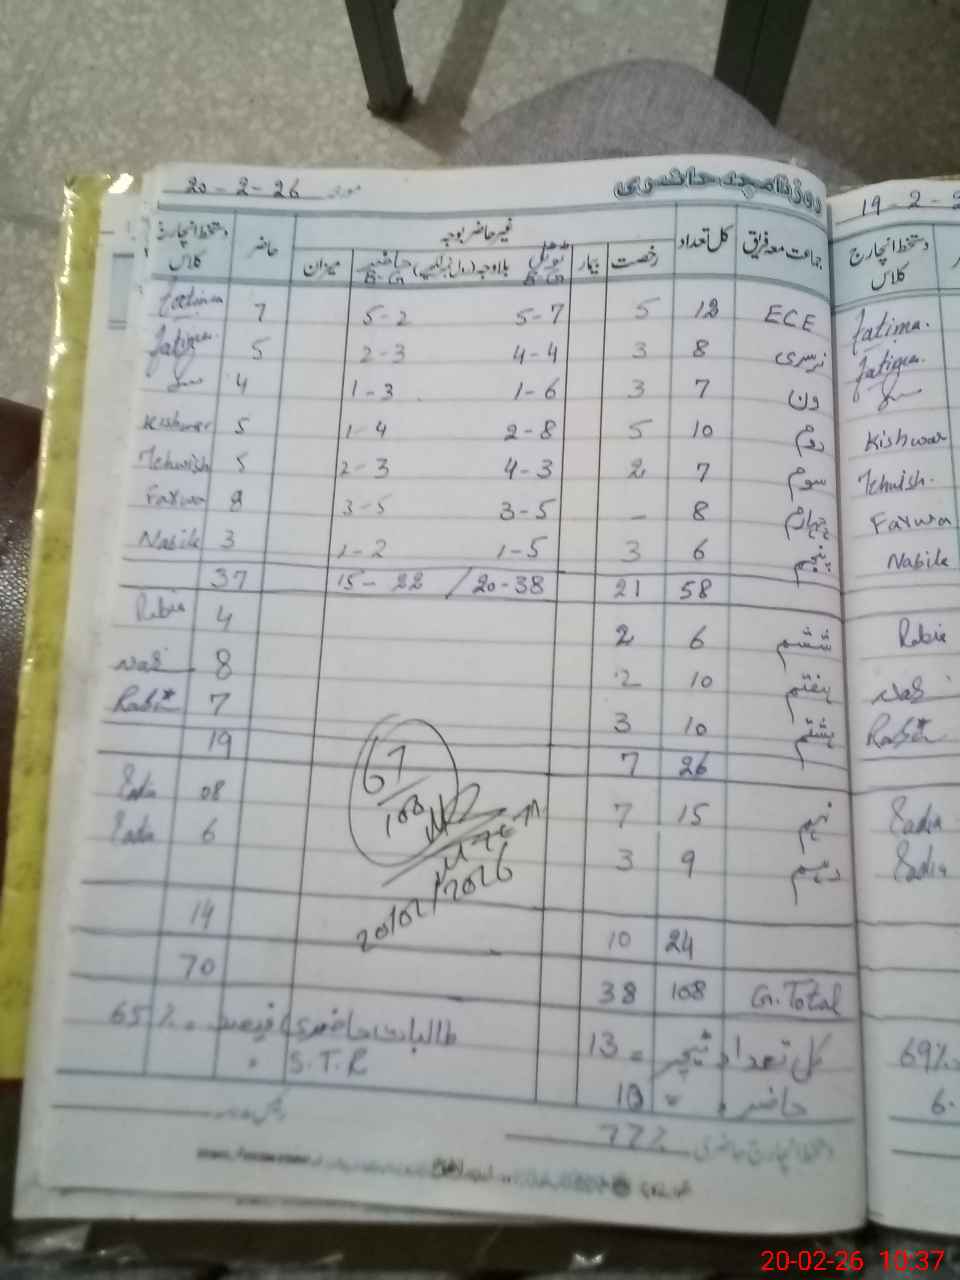 روزنامچہ حاضری مورخہ 20-2-26
جماعت معہ فریق کل تعداد غیر حاضر بوجہ حاضر دستخط انچارج کلاس
رخصت بیمار ٹوٹل B-G بلاوجہ (رول نمبر لکھیے) حاضر B-G میزان
ECE 12 5 5-7 5-2 7 fatima
نرسری 8 3 4-4 2-3 5 fatima
ون 7 3 1-6 1-3 4
دوم 10 5 2-8 1-4 5 Kishwar
سوم 7 2 4-3 2-3 5 Tehwish
چہارم 8 - 3-5 3-5 8 Farwa
پنجم 6 3 1-5 1-2 3 Nabila
58 21 20-38 / 15-22 37
ششم 6 2 4 Rabia
ہفتم 10 2 8
ہشتم 10 3 7 Rabia*
26 7 19
نہم 15 7 08 Sadia
دہم 9 3 6 Sadia
24 10 14
G.Total 108 38 70
67
108
20/02/2026
کل تعداد ٹیچر = 13 طالبات حاضری فیصد 65%
حاضر " 10 S.T.R
دستخط انچارج حاضری 77%
19-2-2
دستخط انچارج کلاس
fatima.
fatima.
Kishwar
Tehwish.
Farwa
Nabila
Rabia
Rabia*
Sadia
Sadia
69%
6.
20-02-26 10:37